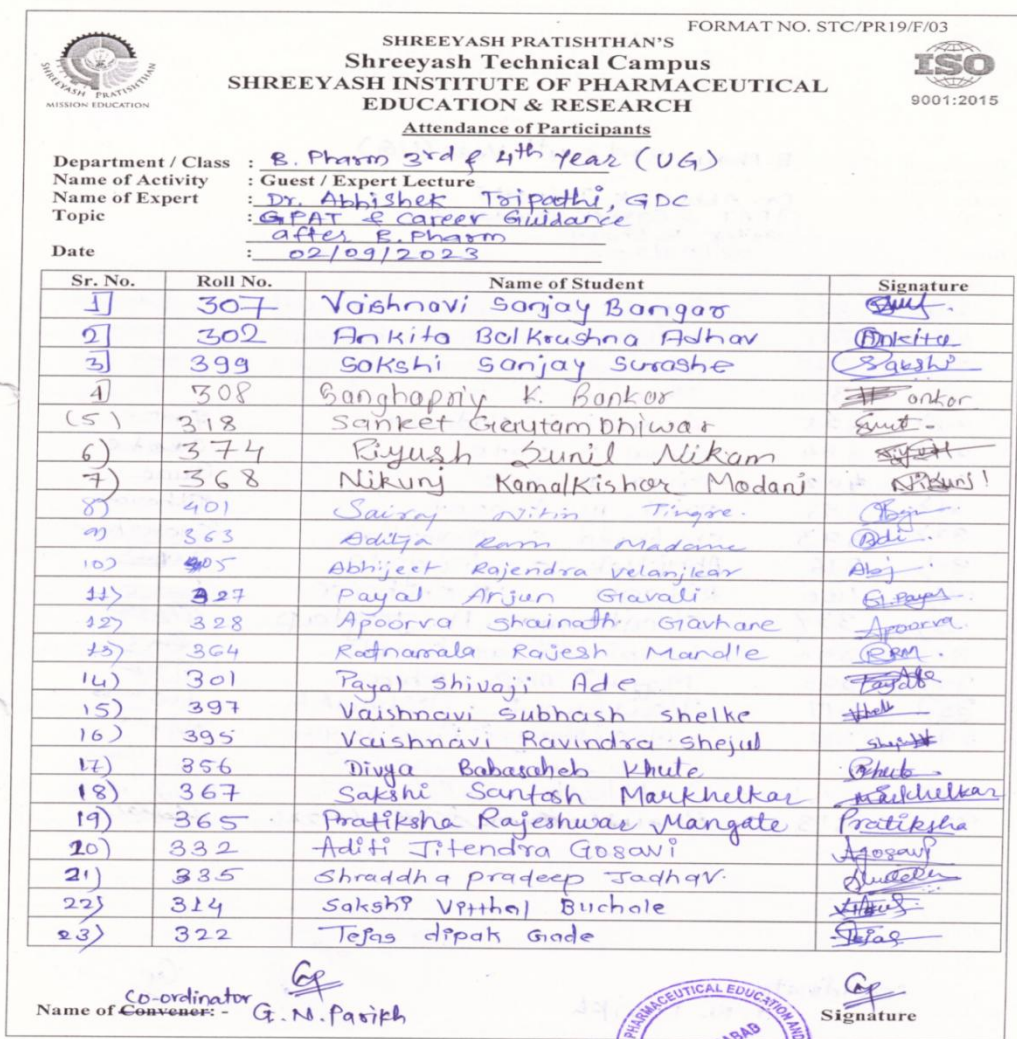 FORMAT NO. STC/PR19/F/03
SHREEYASH PRATISHTHAN'S
Shreeyash Technical Campus
SHREEYASH INSTITUTE OF PHARMACEUTICAL
EDUCATION & RESEARCH
SHREEYASH PRATISHTHAN
MISSION EDUCATION
ISO
9001:2015
Attendance of Participants
Department / Class : B. Pharm 3rd & 4th Year (UG)
Name of Activity : Guest / Expert Lecture
Name of Expert : Dr. Abhishek Tripathi, GDC
Topic : GPAT & Career Guidance
after B. Pharm
Date : 02/09/2023
Sr. No. Roll No. Name of Student Signature
1] 307 Vaishnavi Sanjay Bangar
2] 302 Ankita Balkrushna Adhav Ankita
3] 399 Sakshi Sanjay Surashe Sakshi
4] 308 Sanghapriy K. Bankar
(5) 318 Sanket Gautam Dhiwar
6) 374 Piyush Sunil Nikam
7) 368 Nikunj Kamalkishor Modani Nikunj!
8) 401 Sairaj Nitin Tingre.
9) 363 Aditya Ram Madane Adi
10) 405 Abhijeet Rajendra Velanjkar Abj
11) 327 Payal Arjun Gavali G. Payal
12) 328 Apoorva Shainath Gavhane Apoorva.
13) 364 Ratnamala Rajesh Mandle RRM.
14) 301 Payal Shivaji Ade
15) 397 Vaishnavi Subhash shelke
16) 395 Vaishnavi Ravindra Shejul
17) 356 Divya Babasaheb Khute
18) 367 Sakshi Santosh Markhelkar Markhelkar
19) 365 Pratiksha Rajeshwar Mangate Pratiksha
20) 332 Aditi Jitendra Gosavi Agosavi
21) 335 Shraddha Pradeep Jadhav.
22) 314 Sakshi Vitthal Buchale
23) 322 Tejas dipak Gade Tejas
Co-ordinator
Name of Convener: - G. N. Parikh Signature
PHARMACEUTICAL EDUCATION AND